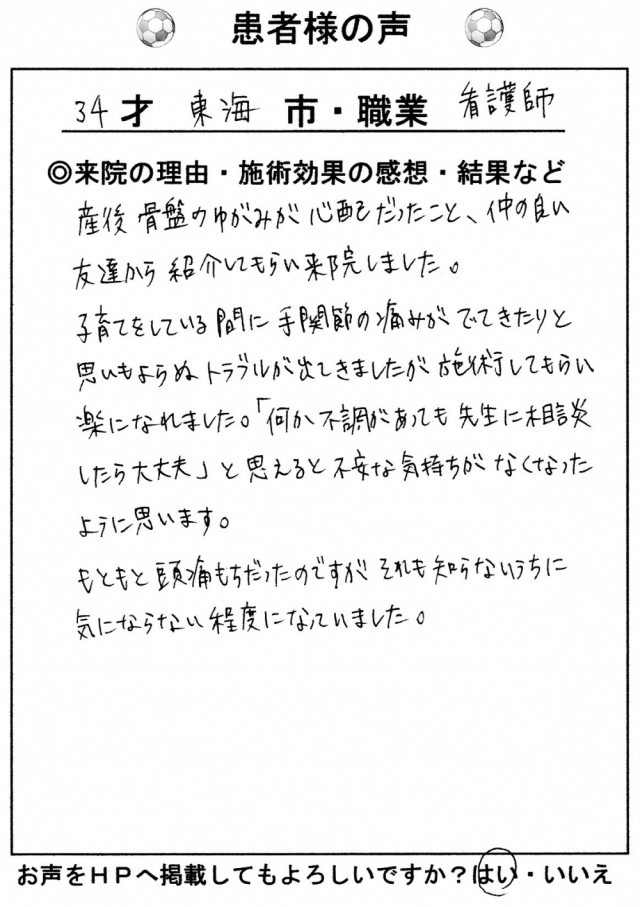 患者様の声
34才 東海 市・職業 看護師
◎来院の理由・施術効果の感想・結果など
産後 骨盤のゆがみが 心配だったこと、仲の良い
友達から 紹介してもらい来院しました。
子育てをしている間に 手関節の痛みが でてきたりと
思いもよらぬ トラブルが出てきましたが 施術してもらい
楽になれました。「何か不調があっても 先生に相談
したら大丈夫」と 思えると 不安な気持ちが なくなった
ように思います。
もともと 頭痛もちだったのですが それも 知らないうちに
気にならない 程度になっていました。
お声をHPへ掲載してもよろしいですか？はい・いいえ